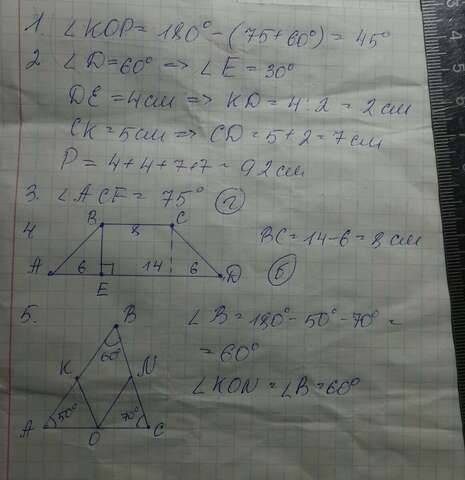 1. ∠KOP = 180° - (75 + 60°) = 45°
2. ∠D = 60° => ∠E = 30°
DE = 4 см => KD = 4 : 2 = 2 см
CK = 5 см => CD = 5 + 2 = 7 см
P = 4 + 4 + 7 + 7 = 92 см
3. ∠ACF = 75° г
4. B 8 C
BC = 14 - 6 = 8 см
A 6 14 6 D б
E
5. B
∠B = 180° - 50° - 70° =
= 60°
60°
K N
∠KON = ∠B = 60°
A 50° 70° C
O